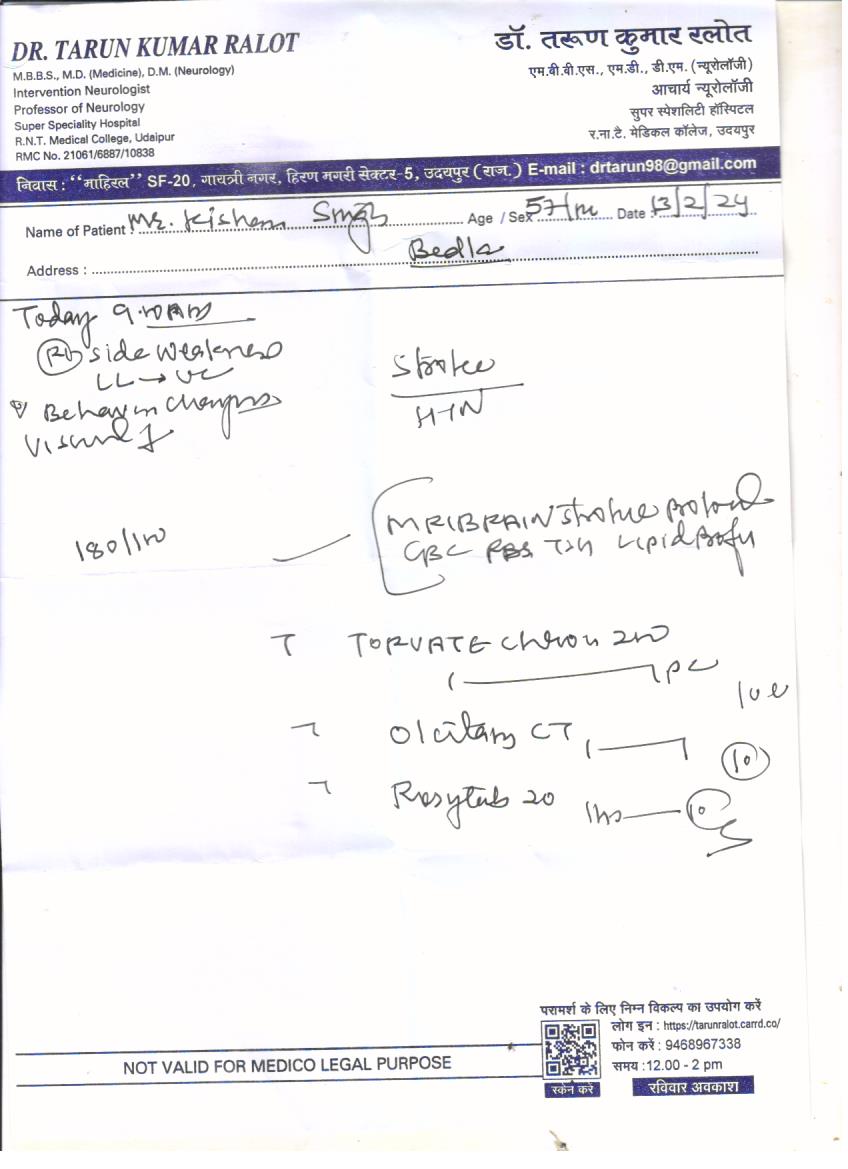 DR. TARUN KUMAR RALOT
M.B.B.S., M.D. (Medicine), D.M. (Neurology)
Intervention Neurologist
Professor of Neurology
Super Speciality Hospital
R.N.T. Medical College, Udaipur
RMC No. 21061/6887/10838
डॉ. तरूण कुमार रलोत
एम.बी.बी.एस., एम.डी., डी.एम. (न्यूरोलॉजी)
आचार्य न्यूरोलॉजी
सुपर स्पेशलिटी हॉस्पिटल
र.ना.टै. मेडिकल कॉलेज, उदयपुर
निवास : "माहिरल" SF-20, गायत्री नगर, हिरण मगरी सेक्टर-5, उदयपुर (राज.) E-mail : drtarun98@gmail.com
Name of Patient : Mr. Kishan Singh Age / Sex 57 / m Date : 13/2/24
Address : Bedla
Today 9:10 AM
Rt side weakness
LL → UL
Behaviour Changes
Visual
Stroke
HTN
180/110
MRI BRAIN Stroke Protocol
CBC RBS TSH Lipid Profile
T TORVATE Chron 200
1 1 PC
T Olcitam CT 1 1 10
T Rosytab 20 1hs 10
परामर्श के लिए निम्न विकल्प का उपयोग करें
लोग इन : https://tarunralot.carrd.co/
फोन करें : 9468967338
समय :12.00 - 2 pm
स्कैन करें रविवार अवकाश
NOT VALID FOR MEDICO LEGAL PURPOSE